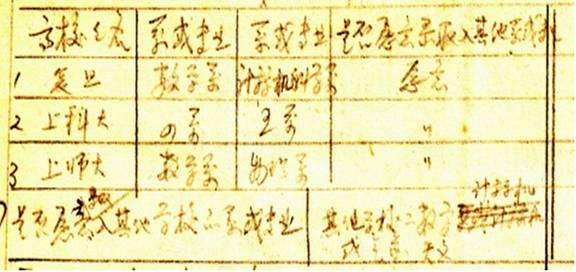 高校名 系或专业 系或专业 是否愿意录取入其他系或专业
1 复旦 数学系 计算机科学系 愿意
2 上科大 〃
3 上师大 数学系 物理系 〃
是否愿意入其他学校的系或专业 其他学校 数学 计算机
或 天文